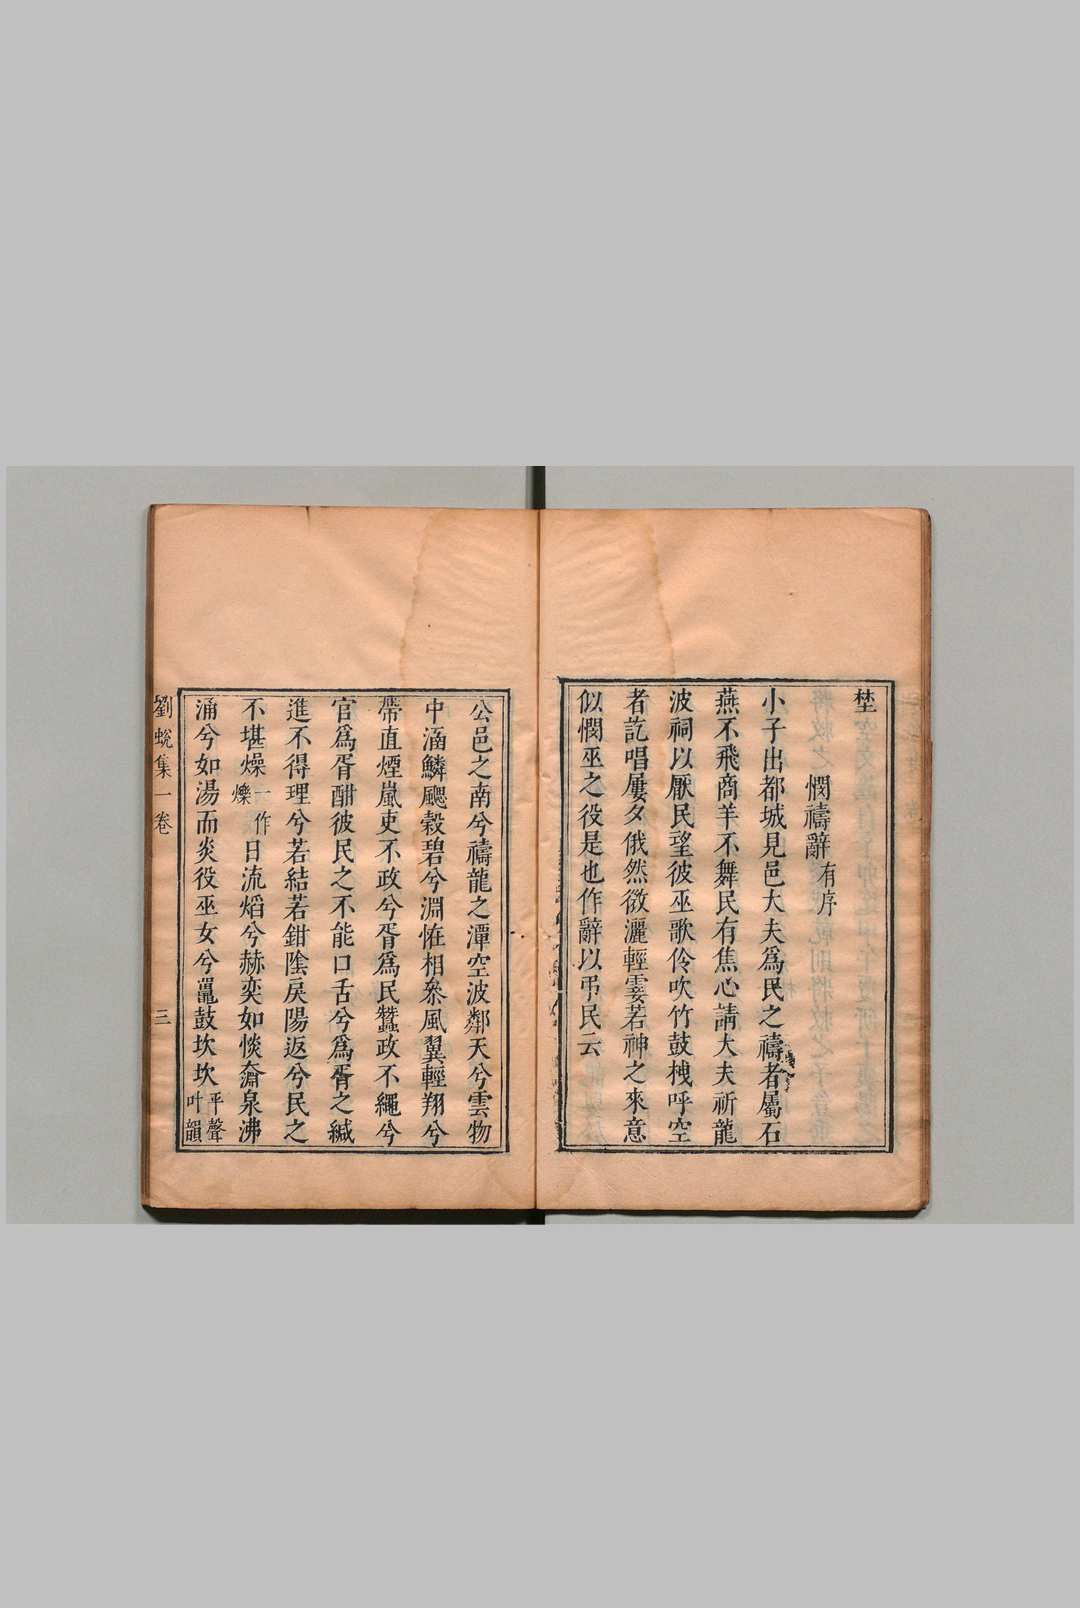 埜
憫禱辭有序
小子出都城見邑大夫為民之禱者屬石
燕不飛商羊不舞民有焦心請大夫祈龍
波祠以厭民望彼巫歌伶吹竹鼓栧呼空
者訖唱屢夕俄然微灑輕霎若神之來意
似憫巫之役是也作辭以弔民云
公邑之南兮禱龍之潭空波鄰天兮雲物
中涵鱗颸縠碧兮淵怪相叅風翼輕翔兮
帶直煙嵐吏不政兮胥為民蠶政不繩兮
官為胥酣彼民之不能口舌兮為胥之緘
進不得理兮若結若鉗隂戾陽返兮民之
不堪燥一作爍日流熖兮赫奕如惔奫泉沸
涌兮如湯而炎役巫女兮鼉鼓坎坎平聲叶韻
劉蛻集一卷 三